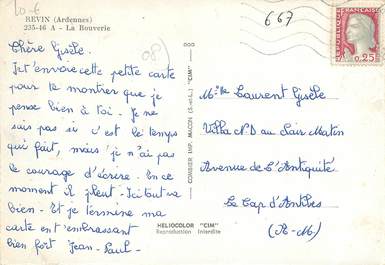 10-6
REVIN (Ardennes)
235-46 A - La Bouverie
08
667
REPUBLIQUE FRANÇAISE
0,25
Chère Gisèle.
Je t'envoie cette petite carte
pour te montrer que je
pense bien à toi. Je ne
sais pas si c'est le temps
qui fait, mais je n'ai pas
le courage d'écrire. En ce
moment il pleut. Ici tout va
bien. Et je termine ma
carte en t'embrassant
bien fort Jean-Paul.
COMBIER IMP. MACON (S.-et-L.) "CIM"
Melle Laurent Gisèle
Villa N.D du Sair Matin
Avenue de L'Antiquité
Le Cap d'Antibes
(A-M)
HELIOCOLOR "CIM"
Reproduction Interdite